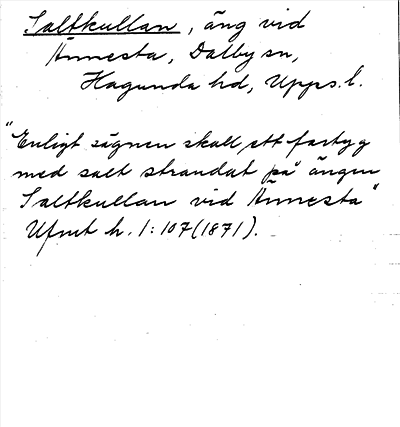 Saltkullan, äng vid
Ännesta, Dalby sn,
Hagunda hd, Upps. l.
"Enligt sägnen skall ett fartyg
med salt strandat på ängen
Saltkullan vid Ännesta"
Ufmt h. 1:107 (1871).